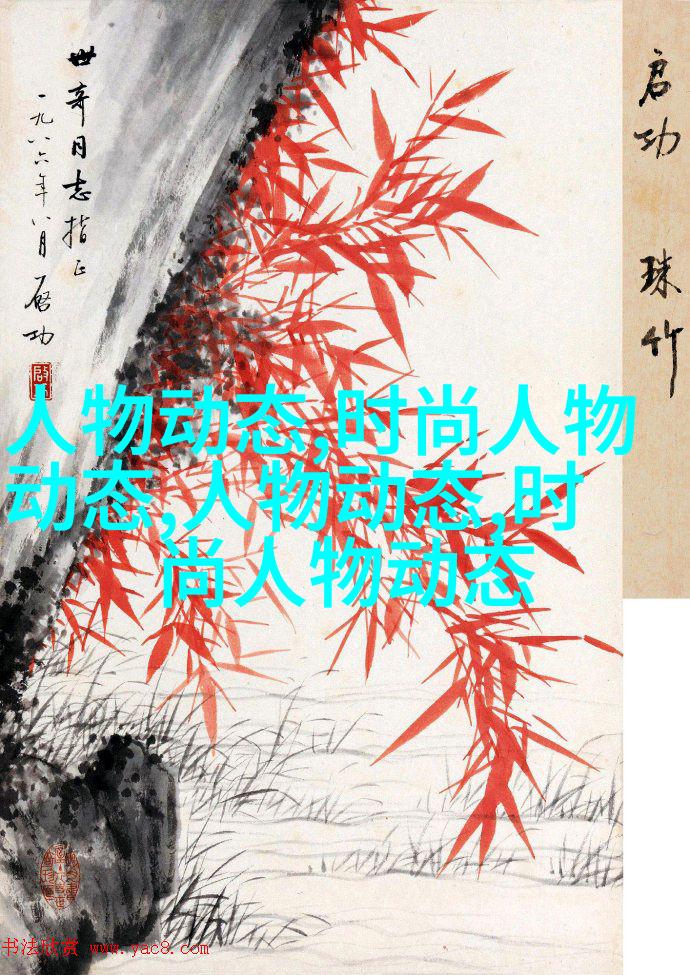 世奇同志指正
一九八六年八月启功
启功 珠竹
人物动态,时尚人物
动态,人物动态,时
尚人物动态
书法欣赏 www.yac8.com